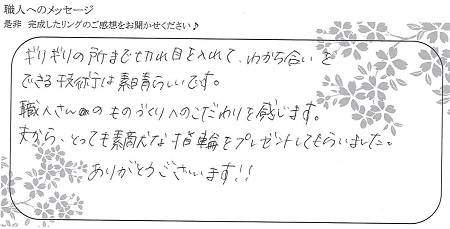 職人へのメッセージ
是非 完成したリングのご感想をお聞かせください♪
ギリギリの所まで切れ目を入れて、わから合いを
できる技術は素晴らしいです。
職人さんの ものづくりへのこだわりを感じます。
夫から、とっても素敵な指輪をプレゼントしてもらいました。
ありがとうございます!!